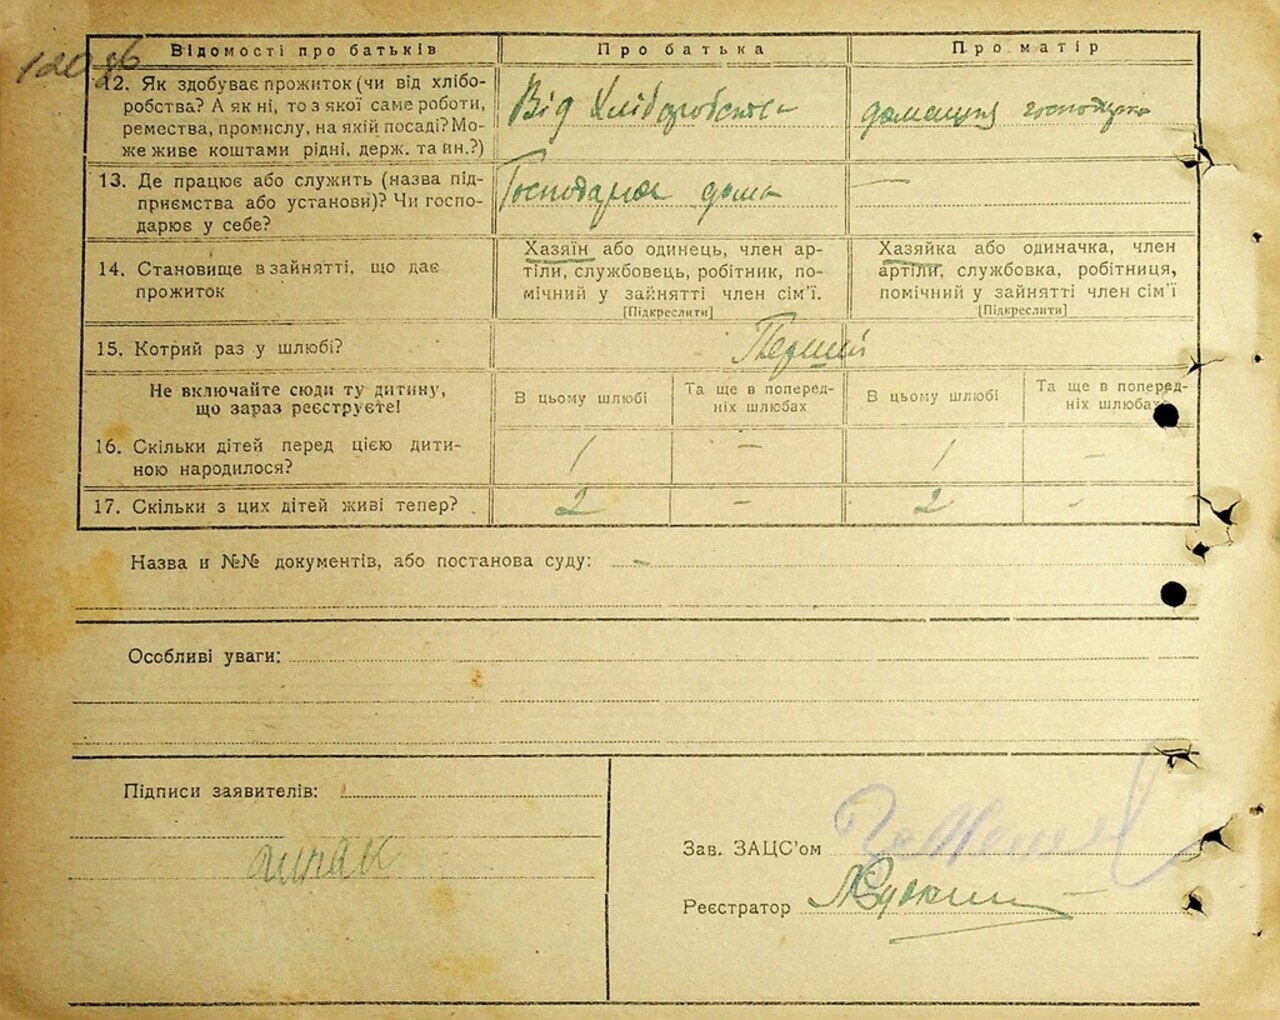 Відомості про батьків Про батька Про матір
12. Як здобуває прожиток (чи від хлібо-
робства? А як ні, то з якої саме роботи,
ремества, промислу, на якій посаді? Мо-
же живе коштами рідні, держ. та йн.?)
Від Хліборобства
домашня господарка
13. Де працює або служить (назва під-
приємства або установи)? Чи госпо-
дарює у себе?
Господарює дома
—
14. Становище в зайнятті, що дає
прожиток
Хазяїн або одинець, член ар-
тіли, службовець, робітник, по-
мічний у зайнятті член сім’ї.
[Підкреслити]
Хазяйка або одиначка, член
артіли, службовка, робітниця,
помічний у зайнятті член сім’ї
[Підкреслити]
15. Котрий раз у шлюбі? Перший
Не включайте сюди ту дитину,
що зараз реєструєте!
В цьому шлюбі
Та ще в поперед-
ніх шлюбах
В цьому шлюбі
Та ще в поперед-
ніх шлюбах
16. Скільки дітей перед цією дити-
ною народилося?
1 — 1 —
17. Скільки з цих дітей живі тепер? 2 — 2 -
Назва и №№ документів, або постанова суду: —
Особливі уваги:
Підписи заявителів:
Зав. ЗАЦС’ом
Реєстратор